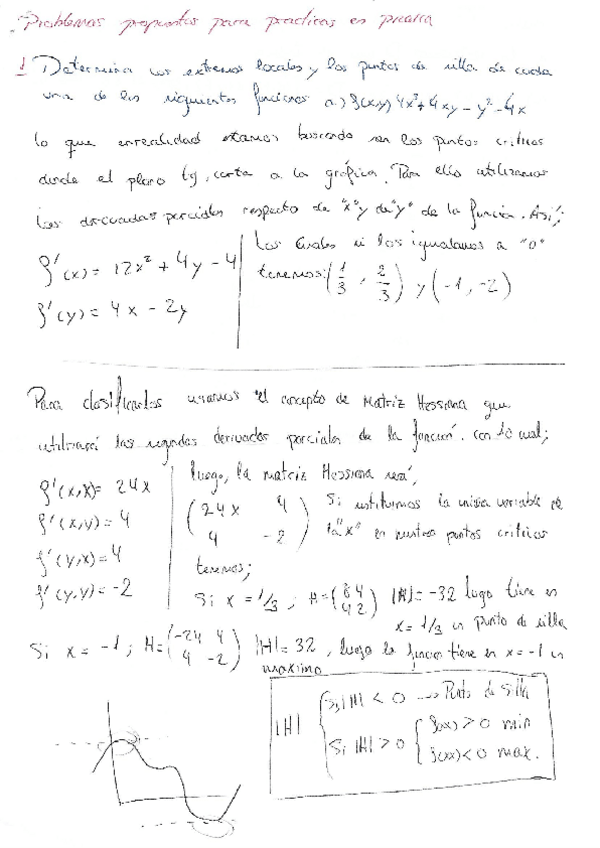 Problemas propuestos para practicas en pizarra
1 Determina los extremos locales y los puntos de silla de cada
una de las siguientes funciones a.) f(x,y) 4x³+4xy-y²-4x
lo que en realidad estamos buscando son los puntos criticos
donde el plano tg, corta a la gráfica. Para ello utilizamos
las derivadas parciales respecto de "x" y de "y" de la función. Así;
f'(x) = 12x² + 4y - 4
f'(y) = 4x - 2y
Los cuales si los igualamos a "0"
tenemos: (1/3, 2/3) y (-1, -2)
Para clasificarlos usamos el concepto de Matriz Hessiana que
utilizará las segundas derivadas parciales de la función. con lo cual;
f'(x,x) = 24x
f'(x,y) = 4
f'(y,x) = 4
f'(y,y) = -2
luego, la matriz Hessiana será,
(24x 4
4 -2)
Si sustituimos la única variable de
la "x" en nuestros puntos criticos
tenemos;
Si x = 1/3; H = (8 4
4 2) |H| = -32 luego tiene en
x = 1/3 un punto de silla
Si x = -1; H = (-24 4
4 -2) |H| = 32, luego la función tiene en x = -1 un
maximo
|H|
Si |H| < 0 → Punto de Silla
Si |H| > 0
f(xx) > 0 min
f(xx) < 0 max.